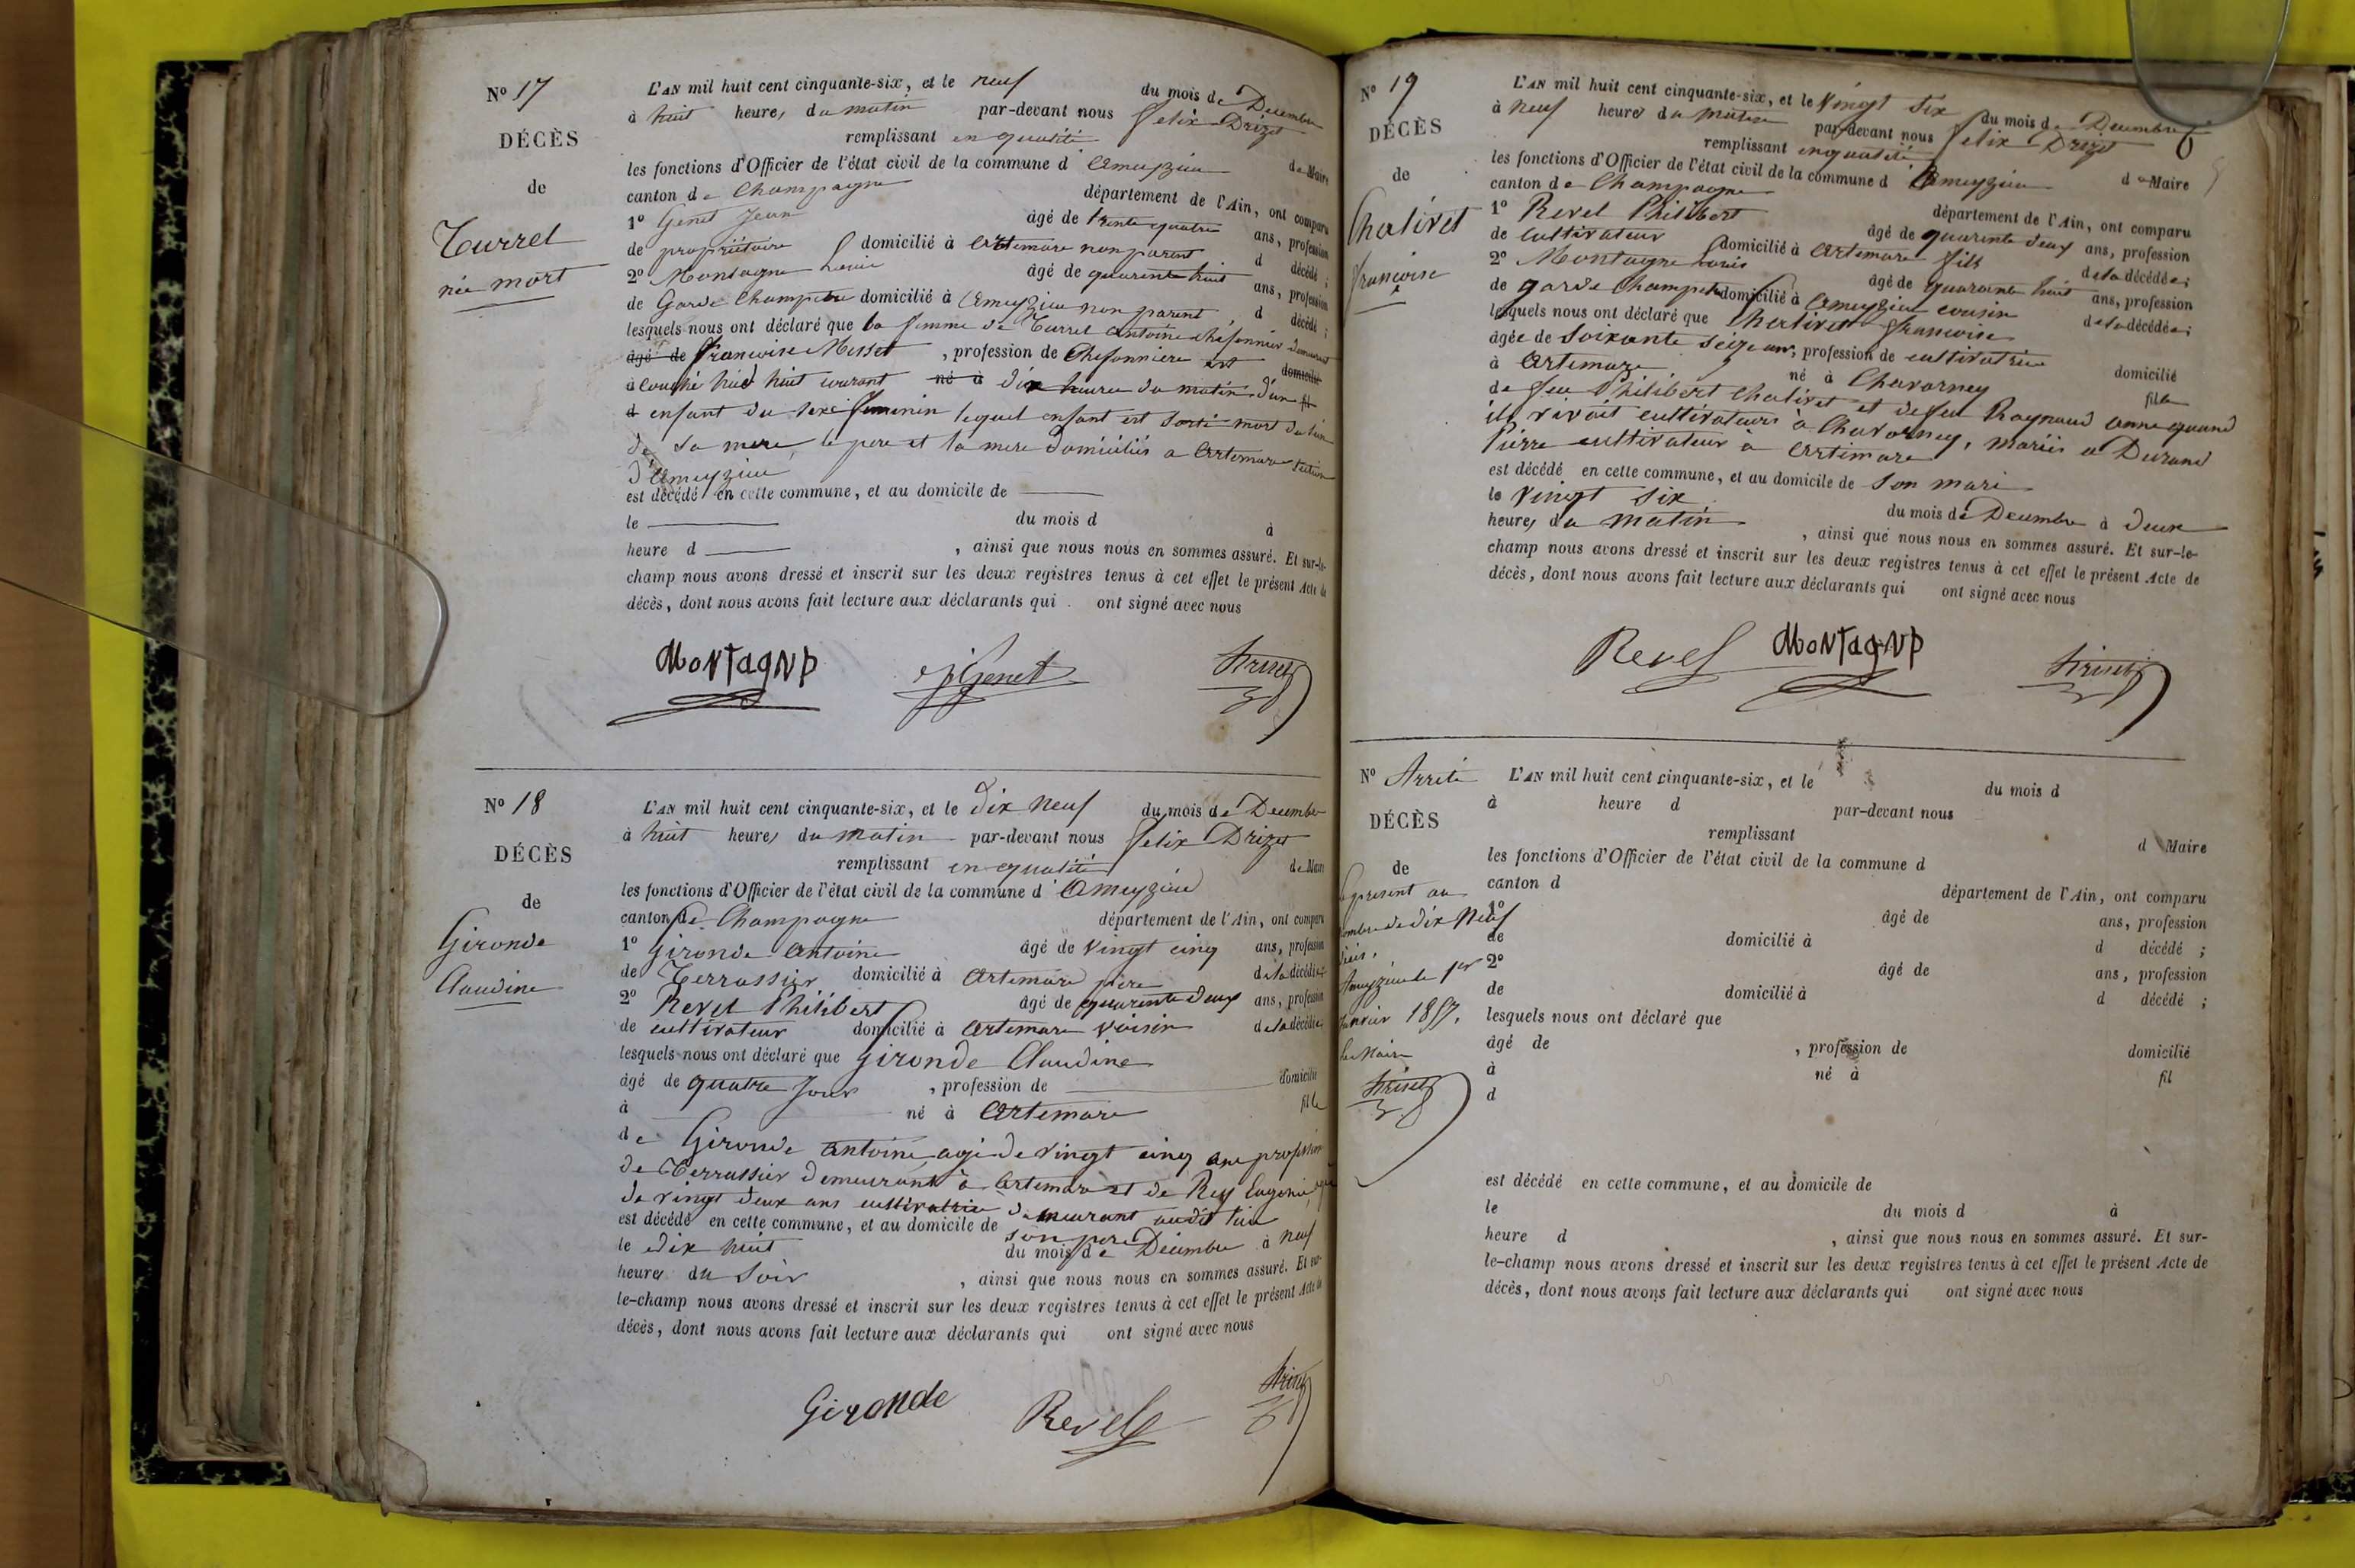 N° 17
DÉCÈS
de
Turrel
née mort
L'AN mil huit cent cinquante-six, et le neuf du mois de Decembre
à huit heures du matin par-devant nous felix Drizet
remplissant en qualité de Maire
les fonctions d'Officier de l'état civil de la commune d'Ameyzieu
canton de Champagne département de l'Ain, ont comparu
1° Genet Jean âgé de trente quatre ans, profession
de propriétaire domicilié à Artemare non parent d décédé ;
2° Montagne Louis âgé de quarante huit ans, profession
de Garde Champetre domicilié à Ameyzieu non parent, d décédé ;
lesquels nous ont déclaré que la femme de Turrel Antoine demeurant
âgé de francoise Misset, profession de est domicilié
à couché hier huit courant né à dix heures du matin d'un fil
d enfant du sexe feminin lequel enfant est sorti mort du sein
de sa mere, le pere et la mere domiciliés a Artemare section
d'Ameyzieu
est décédé en cette commune, et au domicile de
le du mois d à
heure d , ainsi que nous nous en sommes assuré. Et sur-le-
champ nous avons dressé et inscrit sur les deux registres tenus à cet effet le présent Acte de
décès, dont nous avons fait lecture aux déclarants qui ont signé avec nous
Montagne Genet Drizet
N° 18
DÉCÈS
de
Gironde
Claudine
L'AN mil huit cent cinquante-six, et le dix neuf du mois de Decembre
à huit heures du matin par-devant nous felix Drizet
remplissant en qualité de Maire
les fonctions d'Officier de l'état civil de la commune d'Ameyzieu
canton de Champagne département de l'Ain, ont comparu
1° Gironde Antoine âgé de vingt cinq ans, profession
de Terrassier domicilié à Artemare père de la décédée
2° Revel Philibert âgé de quarante deux ans, profession
de cultivateur domicilié à Artemare voisin de la décédée
lesquels nous ont déclaré que Gironde Claudine
âgé de quatre jours, profession de domicilié
à né à Artemare fille
de Gironde Antoine agé de vingt cinq ans profession
de Terrassier demeurant à Artemare et de Rey Eugenie agée
de vingt deux ans cultivatrice demeurant audit lieu
est décédé en cette commune, et au domicile de son pere
le dix huit du mois de Décembre à neuf
heures du soir , ainsi que nous nous en sommes assuré. Et sur-
le-champ nous avons dressé et inscrit sur les deux registres tenus à cet effet le présent Acte de
décès, dont nous avons fait lecture aux déclarants qui ont signé avec nous
Gironde Revel Drizet
N° 19
DÉCÈS
de
Chativet
françoise
L'AN mil huit cent cinquante-six, et le vingt six du mois de Decembre
à neuf heures du matin par-devant nous felix Drizet
remplissant en qualité de Maire
les fonctions d'Officier de l'état civil de la commune d'Ameyzieu
canton de Champagne département de l'Ain, ont comparu
1° Revel Philibert âgé de quarante deux ans, profession
de cultivateur domicilié à Artemare fils de la décédée ;
2° Montagne Louis âgé de quarante huit ans, profession
de garde champetre domicilié à Ameyzieu cousin de la décédée ;
lesquels nous ont déclaré que Chativet françoise
âgée de soixante seize ans, profession de cultivatrice domicilié
à Artemare né à Chavornay fille
de feu Philibert Chativet et de feu Raynaud Anne quand
ils vivait cultivateurs à Chavornay, mariée a Durand
Pierre cultivateur a Artemare
est décédé en cette commune, et au domicile de son mari
le vingt six du mois de Decembre à deux
heures du matin , ainsi que nous nous en sommes assuré. Et sur-le-
champ nous avons dressé et inscrit sur les deux registres tenus à cet effet le présent Acte de
décès, dont nous avons fait lecture aux déclarants qui ont signé avec nous
Revel Montagne Drizet
N° Arreté
DÉCÈS
de
le present au
nombre de dix neuf
décès.
Ameyzieu le 1er
Janvier 1857.
Le Maire
Drizet
L'AN mil huit cent cinquante-six, et le du mois d
à heure d par-devant nous
remplissant d Maire
les fonctions d'Officier de l'état civil de la commune d
canton d département de l'Ain, ont comparu
1° âgé de ans, profession
de domicilié à d décédé ;
2° âgé de ans, profession
de domicilié à d décédé ;
lesquels nous ont déclaré que
âgé de , profession de domicilié
à né à fil
d
est décédé en cette commune, et au domicile de
le du mois d à
heure d , ainsi que nous nous en sommes assuré. Et sur-
le-champ nous avons dressé et inscrit sur les deux registres tenus à cet effet le présent Acte de
décès, dont nous avons fait lecture aux déclarants qui ont signé avec nous